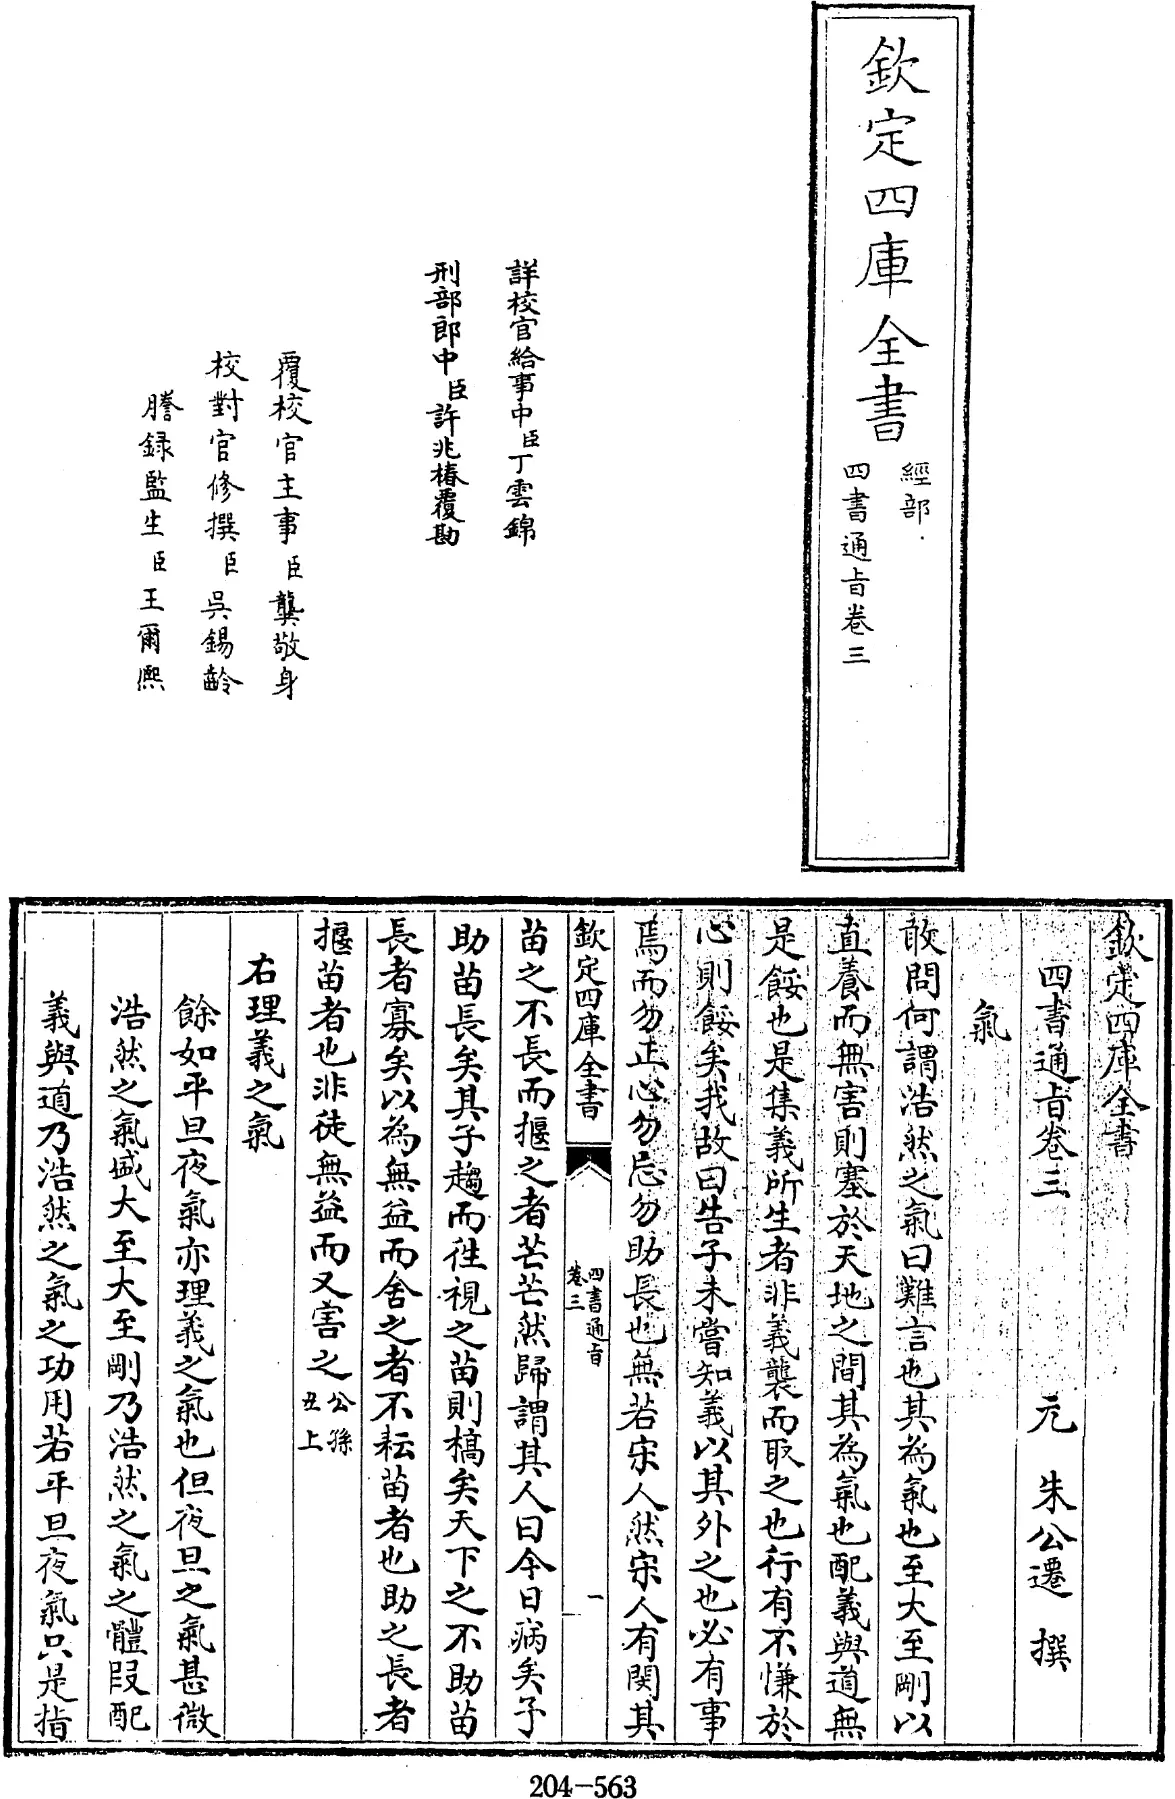 欽定四庫全書
經部
四書通旨卷三
詳校官給事中臣丁雲錦
刑部郎中臣許兆椿覆勘
覆校官主事臣龔敬身
校對官修撰臣吳錫齡
謄録監生臣王爾熙
欽定四庫全書
四書通旨卷三
元 朱公遷 撰
氣
敢問何謂浩然之氣曰難言也其為氣也至大至剛以
直養而無害則塞於天地之間其為氣也配義與道無
是餒也是集義所生者非義襲而取之也行有不慊於
心則餒矣我故曰告子未嘗知義以其外之也必有事
焉而勿正心勿忘勿助長也無若宋人然宋人有閔其
欽定四庫全書
四書通旨
卷三
一
苗之不長而揠之者芒芒然歸謂其人曰今日病矣予
助苗長矣其子趨而徃視之苗則槁矣天下之不助苗
長者寡矣以為無益而舍之者不耘苗者也助之長者
揠苗者也非徒無益而又害之
公孫
丑上
右理義之氣
餘如平旦夜氣亦理義之氣也但夜旦之氣甚微
浩然之氣盛大至大至剛乃浩然之氣之體段配
義與道乃浩然之氣之功用若平旦夜氣只是指
204-563